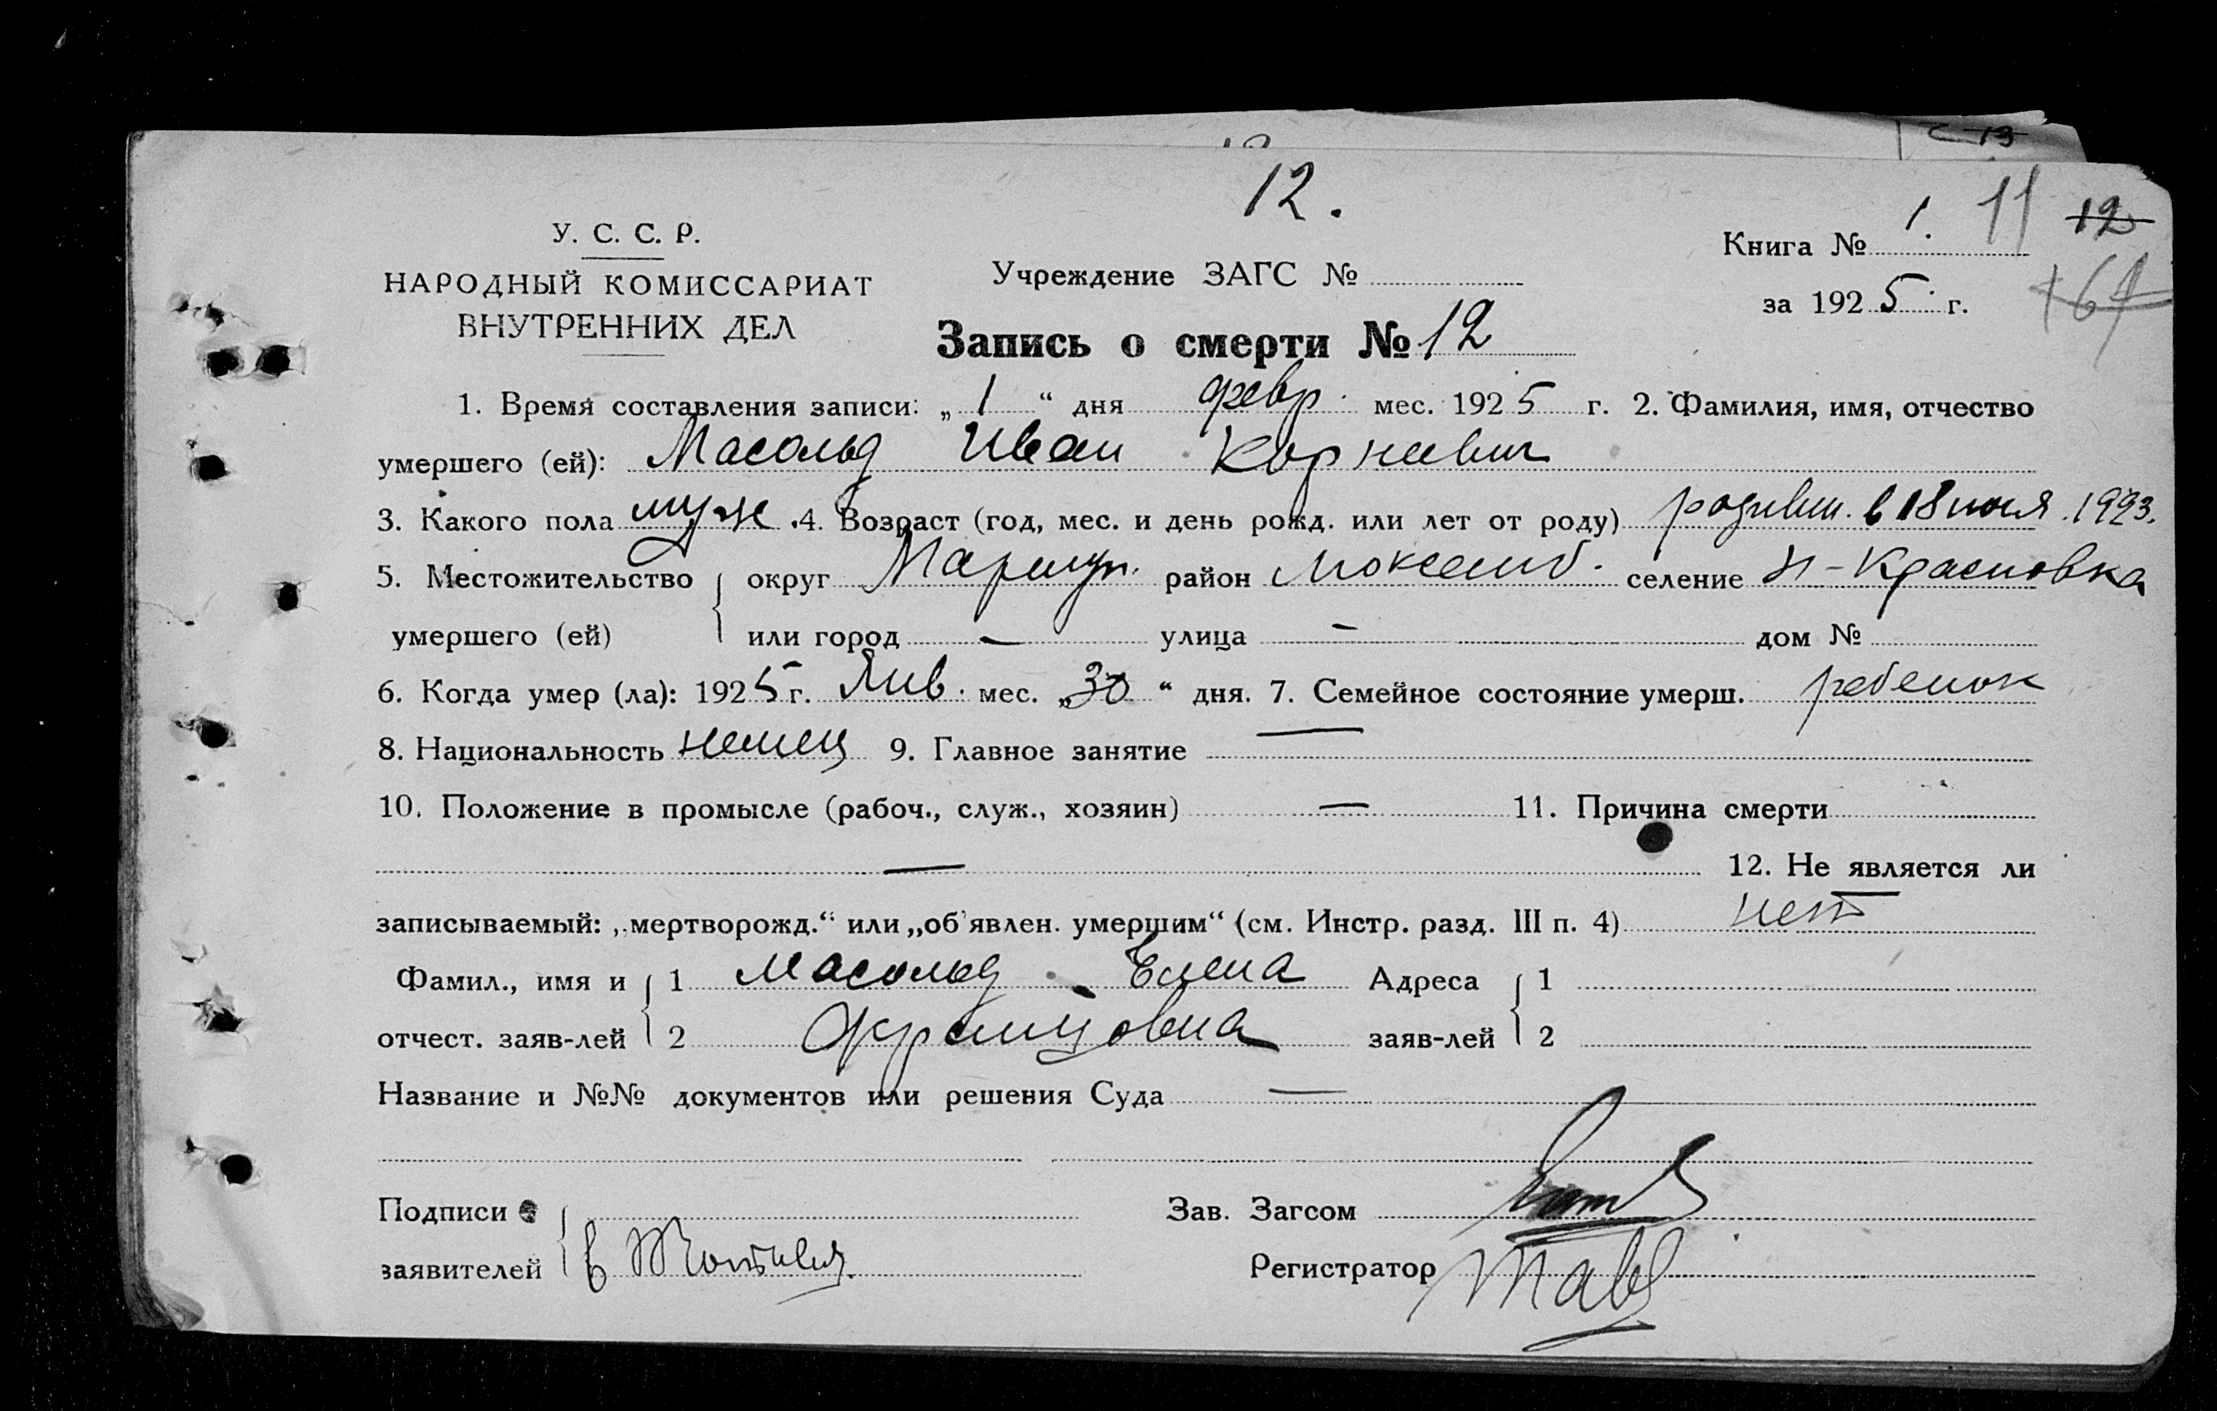 12.
У. С. С. Р.
НАРОДНЫЙ КОМИССАРИАТ
ВНУТРЕННИХ ДЕЛ
Учреждение ЗАГС №
Книга № 1. 11 12
за 1925 г. 167
Запись о смерти № 12
1. Время составления записи: „1“ дня февр. мес. 1925 г. 2. Фамилия, имя, отчество
умершего (ей): Масольд Иван Корневич
3. Какого пола муж. 4. Возраст (год, мес. и день рожд. или лет от роду) родивш. в 18 1923.
5. Местожительство округ Мариуп. район селение Н-Красновка
умершего (ей) или город — улица — дом №
6. Когда умер (ла): 1925 г. Янв. мес. „30“ дня. 7. Семейное состояние умерш. ребенок
8. Национальность немец 9. Главное занятие —
10. Положение в промысле (рабоч., служ., хозяин) — 11. Причина смерти
— 12. Не является ли
записываемый: „мертворожд.“ или „об'явлен. умершим“ (см. Инстр. разд. III п. 4) нет
Фамил., имя и 1 Масольд Елена Адреса 1
отчест. заяв-лей 2 Францовна заяв-лей 2
Название и №№ документов или решения Суда —
Подписи Зав. Загсом
заявителей Регистратор